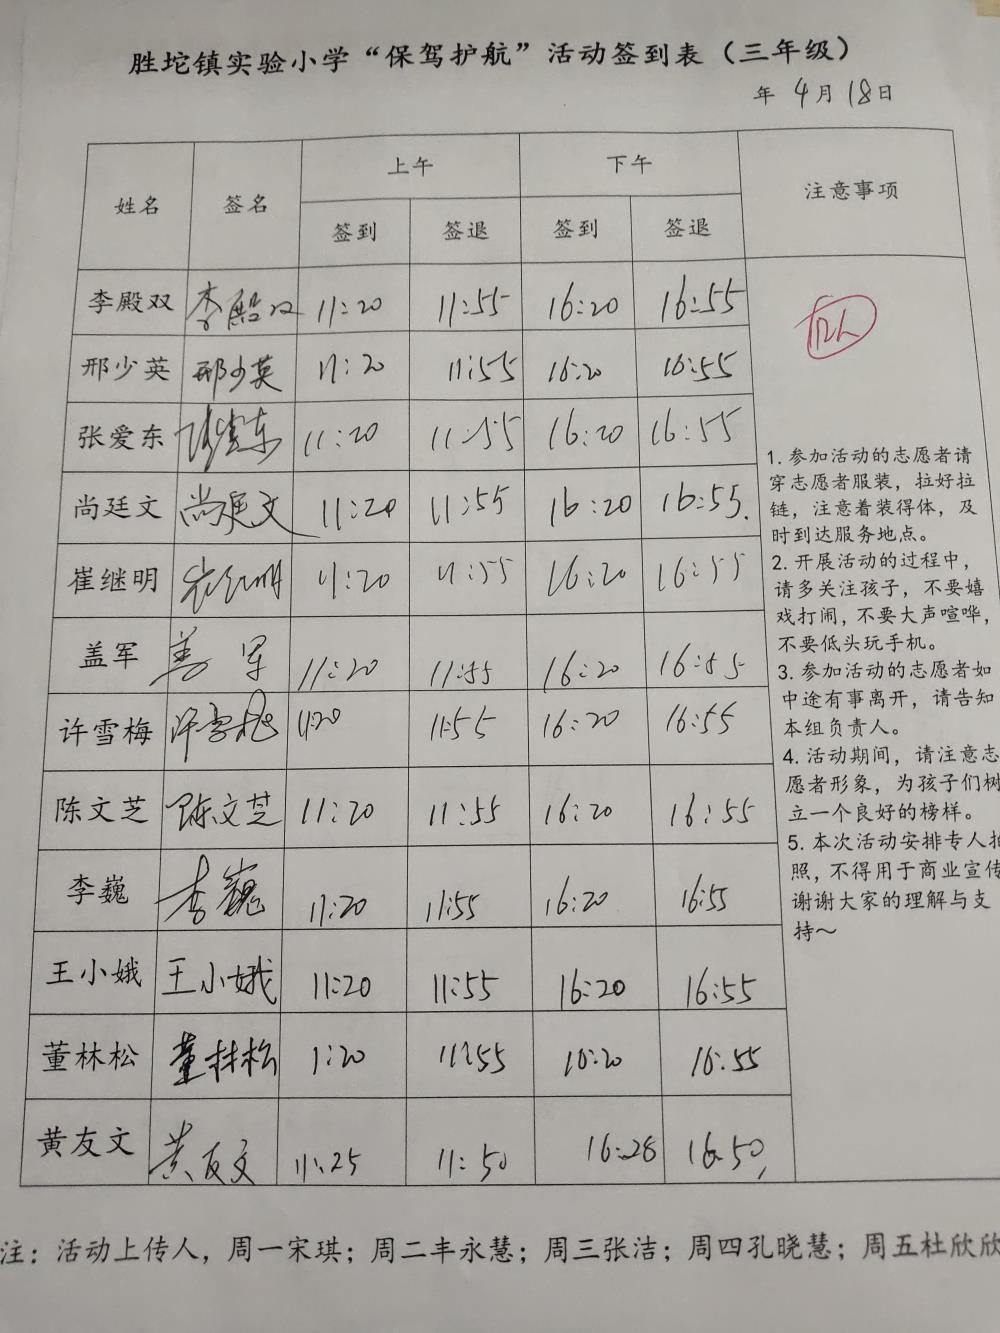 胜坨镇实验小学“保驾护航”活动签到表（三年级）
年 4月18日
姓名 签名 上午 下午 注意事项
签到 签退 签到 签退
李殿双 李殿双 11:20 11:55 16:20 16:55
邢少英 邢少英 11:20 11:55 16:20 16:55
张爱东 张爱东 11:20 11:55 16:20 16:55
尚廷文 尚廷文 11:20 11:55 16:20 16:55.
崔继明 崔继明 11:20 11:55 16:20 16:55
盖军 盖军 11:20 11:55 16:20 16:55
许雪梅 许雪梅 11:20 11:55 16:20 16:55
陈文芝 陈文芝 11:20 11:55 16:20 16:55
李巍 李巍 11:20 11:55 16:20 16:55
王小娥 王小娥 11:20 11:55 16:20 16:55
董林松 董林松 1:20 11:55 16:20 16:55
黄友文 黄友文 11:25 11:50 16:28 16:50
12人
1. 参加活动的志愿者请
穿志愿者服装，拉好拉
链，注意着装得体，及
时到达服务地点。
2. 开展活动的过程中，
请多关注孩子，不要嬉
戏打闹，不要大声喧哗，
不要低头玩手机。
3. 参加活动的志愿者如
中途有事离开，请告知
本组负责人。
4. 活动期间，请注意志
愿者形象，为孩子们树
立一个良好的榜样。
5. 本次活动安排专人拍
照，不得用于商业宣传
谢谢大家的理解与支
持～
注：活动上传人，周一宋琪；周二丰永慧；周三张洁；周四孔晓慧；周五杜欣欣